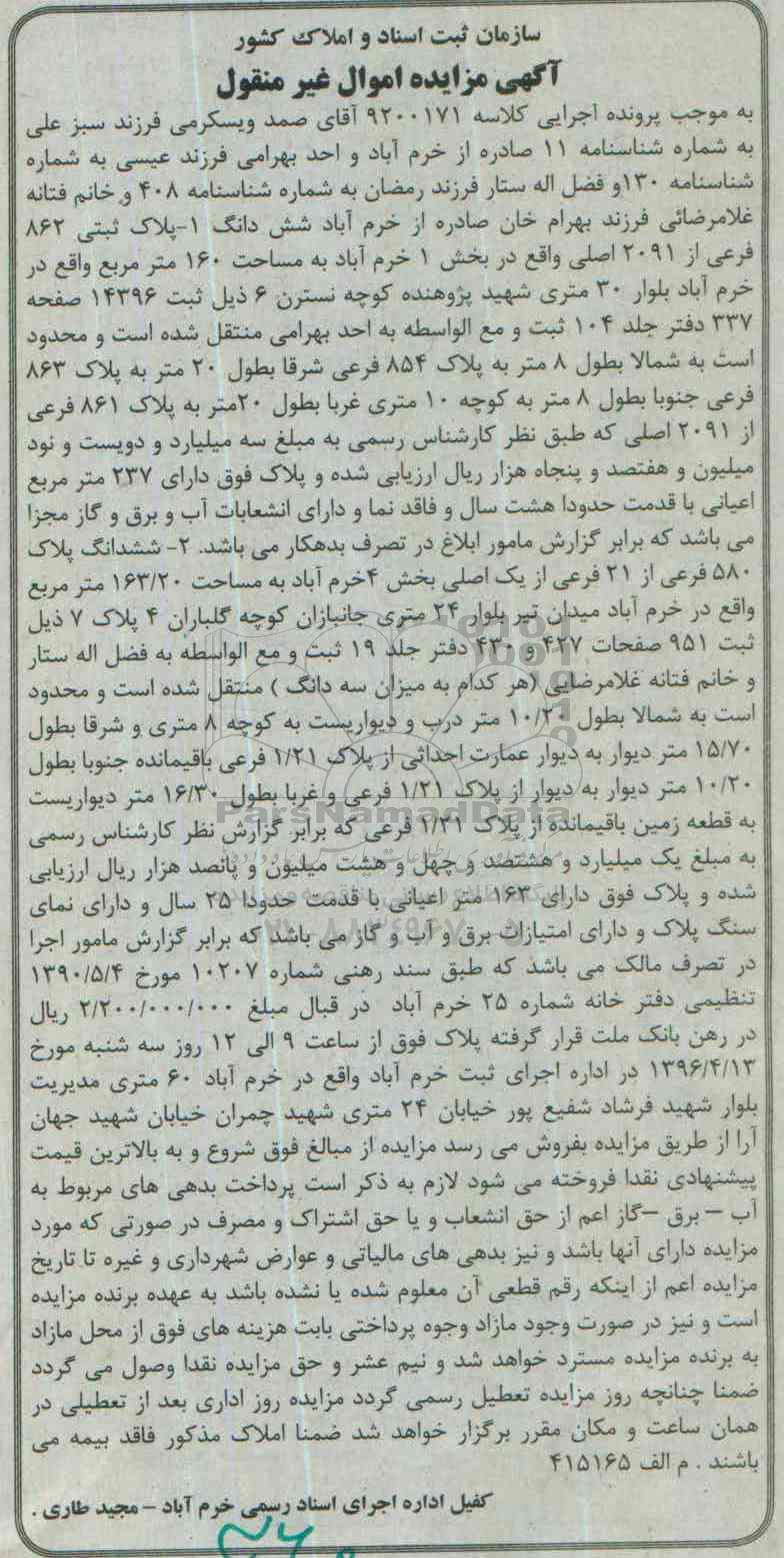 سازمان ثبت اسناد و املاک کشور
آگهی مزایده اموال غیر منقول
به موجب پرونده اجرایی کلاسه ۹۲۰۰۱۷۱ آقای صمد ویسکرمی فرزند سبز علی
به شماره شناسنامه ۱۱ صادره از خرم آباد و احد بهرامی فرزند عیسی به شماره
شناسنامه ۱۳۰و فضل اله ستار فرزند رمضان به شماره شناسنامه ۴۰۸ و خانم فتانه
غلامرضائی فرزند بهرام خان صادره از خرم آباد شش دانگ ۱-پلاک ثبتی ۸۶۲
فرعی از ۲۰۹۱ اصلی واقع در بخش ۱ خرم آباد به مساحت ۱۶۰ متر مربع واقع در
خرم آباد بلوار ۳۰ متری شهید پژوهنده کوچه نسترن ۶ ذیل ثبت ۱۴۳۹۶ صفحه
۳۳۷ دفتر جلد ۱۰۴ ثبت و مع الواسطه به احد بهرامی منتقل شده است و محدود
است به شمالا بطول ۸ متر به پلاک ۸۵۴ فرعی شرقا بطول ۲۰ متر به پلاک ۸۶۳
فرعی جنوبا بطول ۸ متر به کوچه ۱۰ متری غربا بطول ۲۰متر به پلاک ۸۶۱ فرعی
از ۲۰۹۱ اصلی که طبق نظر کارشناس رسمی به مبلغ سه میلیارد و دویست و نود
میلیون و هفتصد و پنجاه هزار ریال ارزیابی شده و پلاک فوق دارای ۲۳۷ متر مربع
اعیانی با قدمت حدودا هشت سال و فاقد نما و دارای انشعابات آب و برق و گاز مجزا
می باشد که برابر گزارش مامور ابلاغ در تصرف بدهکار می باشد. ۲- ششدانگ پلاک
۵۸۰ فرعی از ۲۱ فرعی از یک اصلی بخش ۴خرم آباد به مساحت ۱۶۳/۲۰ متر مربع
واقع در خرم آباد میدان تیر بلوار ۲۴ متری جانبازان کوچه گلباران ۴ پلاک ۷ ذیل
ثبت ۹۵۱ صفحات ۴۲۷ و ۴۳۰ دفتر جلد ۱۹ ثبت و مع الواسطه به فضل اله ستار
و خانم فتانه غلامرضایی (هر کدام به میزان سه دانگ ) منتقل شده است و محدود
است به شمالا بطول ۱۰/۲۰ متر درب و دیواریست به کوچه ۸ متری و شرقا بطول
۱۵/۷۰ متر دیوار به دیوار عمارت احداثی از پلاک ۱/۲۱ فرعی باقیمانده جنوبا بطول
۱۰/۲۰ متر دیوار به دیوار از پلاک ۱/۲۱ فرعی و غربا بطول ۱۶/۳۰ متر دیواریست
به قطعه زمین باقیمانده از پلاک ۱/۲۱ فرعی که برابر گزارش نظر کارشناس رسمی
به مبلغ یک میلیارد و هشتصد و چهل و هشت میلیون و پانصد هزار ریال ارزیابی
شده و پلاک فوق دارای ۱۶۳ متر اعیانی با قدمت حدودا ۲۵ سال و دارای نمای
سنگ پلاک و دارای امتیازات برق و آب و گاز می باشد که برابر گزارش مامور اجرا
در تصرف مالک می باشد که طبق سند رهنی شماره ۱۰۲۰۷ مورخ ۱۳۹۰/۵/۴
تنظیمی دفتر خانه شماره ۲۵ خرم آباد در قبال مبلغ ۲/۲۰۰/۰۰۰/۰۰۰ ریال
در رهن بانک ملت قرار گرفته پلاک فوق از ساعت ۹ الی ۱۲ روز سه شنبه مورخ
۱۳۹۶/۴/۱۳ در اداره اجرای ثبت خرم آباد واقع در خرم آباد ۶۰ متری مدیریت
بلوار شهید فرشاد شفیع پور خیابان ۲۴ متری شهید چمران خیابان شهید جهان
آرا از طریق مزایده بفروش می رسد مزایده از مبالغ فوق شروع و به بالاترین قیمت
پیشنهادی نقدا فروخته می شود لازم به ذکر است پرداخت بدهی های مربوط به
آب – برق –گاز اعم از حق انشعاب و یا حق اشتراک و مصرف در صورتی که مورد
مزایده دارای آنها باشد و نیز بدهی های مالیاتی و عوارض شهرداری و غیره تا تاریخ
مزایده اعم از اینکه رقم قطعی آن معلوم شده یا نشده باشد به عهده برنده مزایده
است و نیز در صورت وجود مازاد وجوه پرداختی بابت هزینه های فوق از محل مازاد
به برنده مزایده مسترد خواهد شد و نیم عشر و حق مزایده نقدا وصول می گردد
ضمنا چنانچه روز مزایده تعطیل رسمی گردد مزایده روز اداری بعد از تعطیلی در
همان ساعت و مکان مقرر برگزار خواهد شد ضمنا املاک مذکور فاقد بیمه می
باشند . م الف ۴۱۵۱۶۵
کفیل اداره اجرای اسناد رسمی خرم آباد – مجید طاری .
ParsNamadData